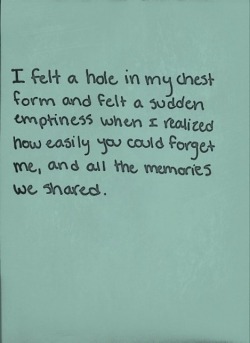 I felt a hole in my chest
form and felt a sudden
emptiness when I realized
how easily you could forget
me, and all the memories
we shared.